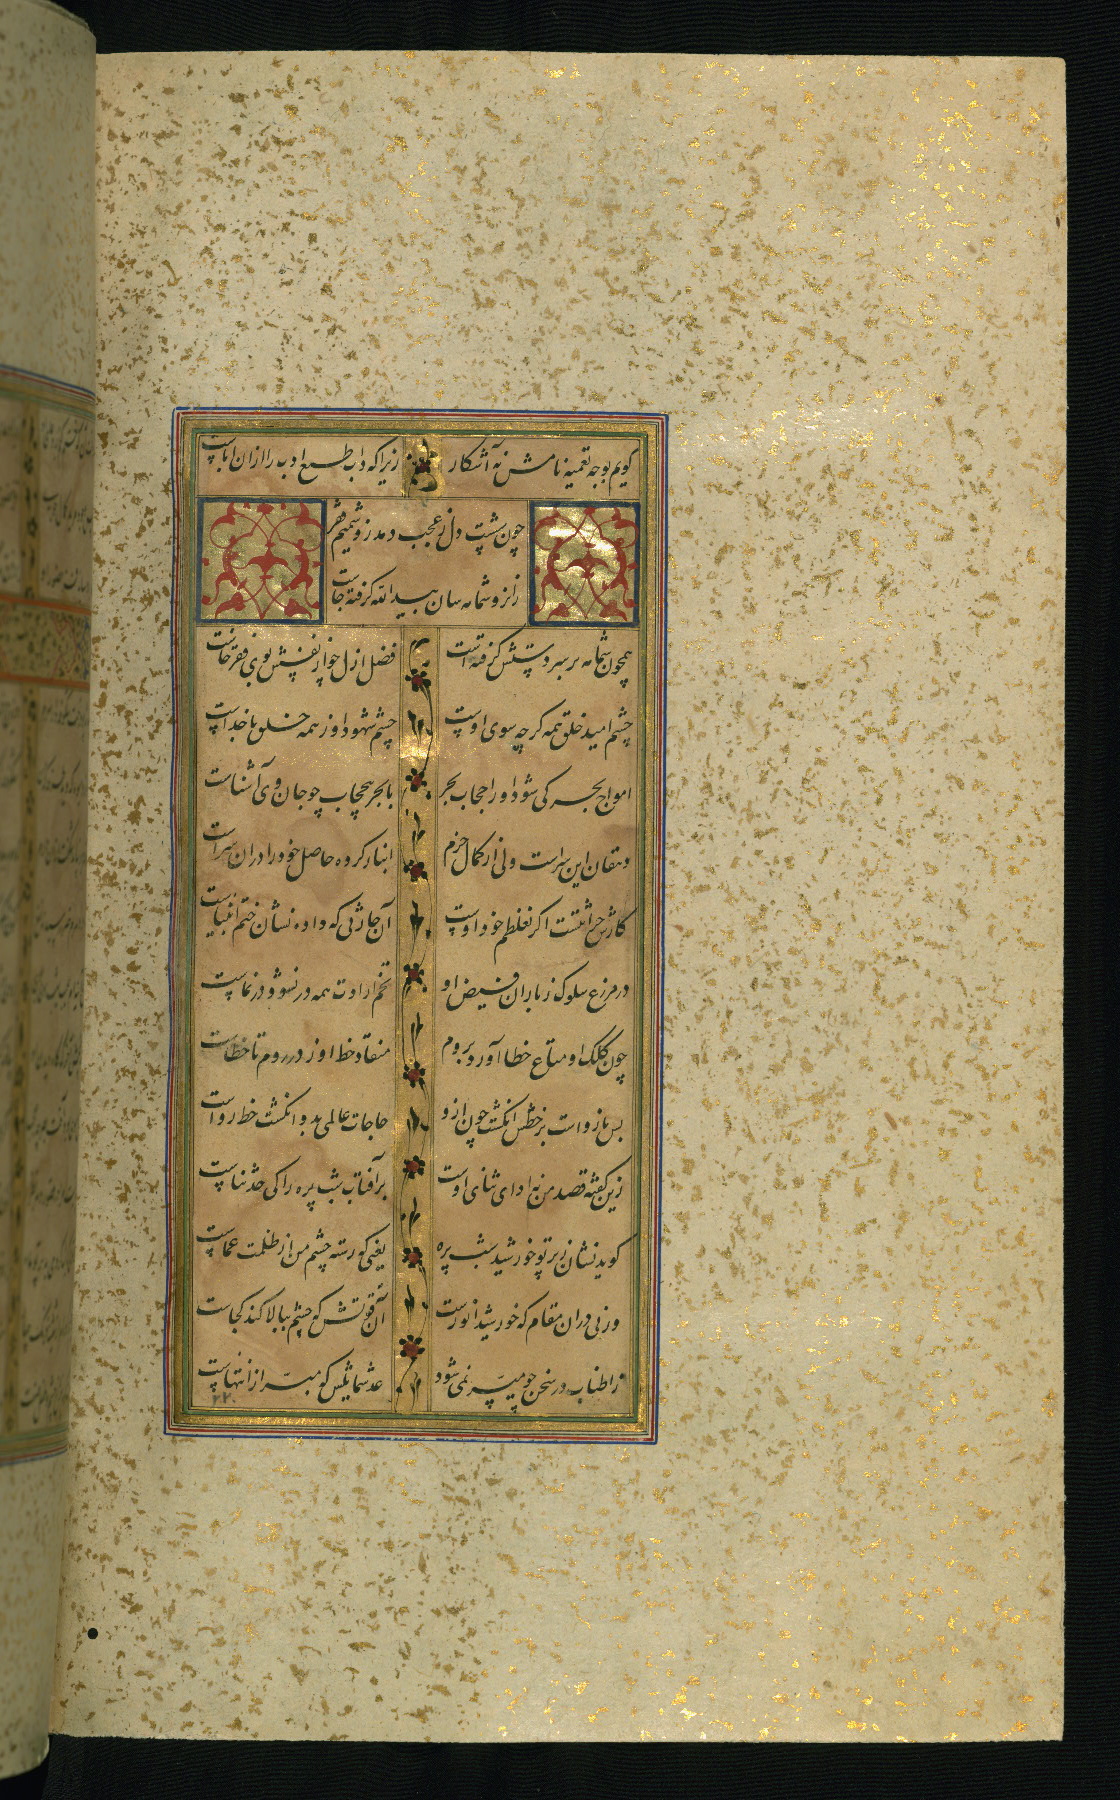 گویم بوجه تعمیه نامش نه آشکار زیرا که داب طبع ادب را ازان اباست
چون مشت دل ز عجب دمد زو شمیم فقر
زانرو شمامه سان بید الله گرفته جاست
همچون شمامه بر سر دستش گرفته است فضل ازل چو از نفسش بوی فقر خاست
چشم امید خلق همه گرچه سوی اوست چشم شهود او ز همه خلق با خداست
امواج بحر کی شود او را حجاب بحر با بحر بی حجاب چو جان وی آشناست
دهقان این سراست ولی از کمال حزم انبار کرده حاصل خود را در آن سراست
کارش حراثتست اگر نه غلطم خود اوست آن حارثی که داده نشان ختم انبیاست
در مزرع سلوک ز باران فیض او تخم ارادت همه در نشو و در نماست
چون کلک او متاع خطا آورد بروم منقاد خط او ز در روم تا خطاست
بس نازواست بر خطش انگشت چون ازو حاجات عالمی بدو انگشت خط رواست
زین گفته قصد من نه ادای ثنای اوست بر آفتاب شب پره را کی حد ثناست
گوید نشان ز پرتو خورشید شب پره یعنی که رسته چشم من از ظلمت عماست
ورنی دران مقام که خورشید انورست آن قوتش که چشم ببالا کند کجاست
ز اطناب در سخن چو میسر نمی شود عد شمایلش که مبرا ز انتهاست
۲۲۰